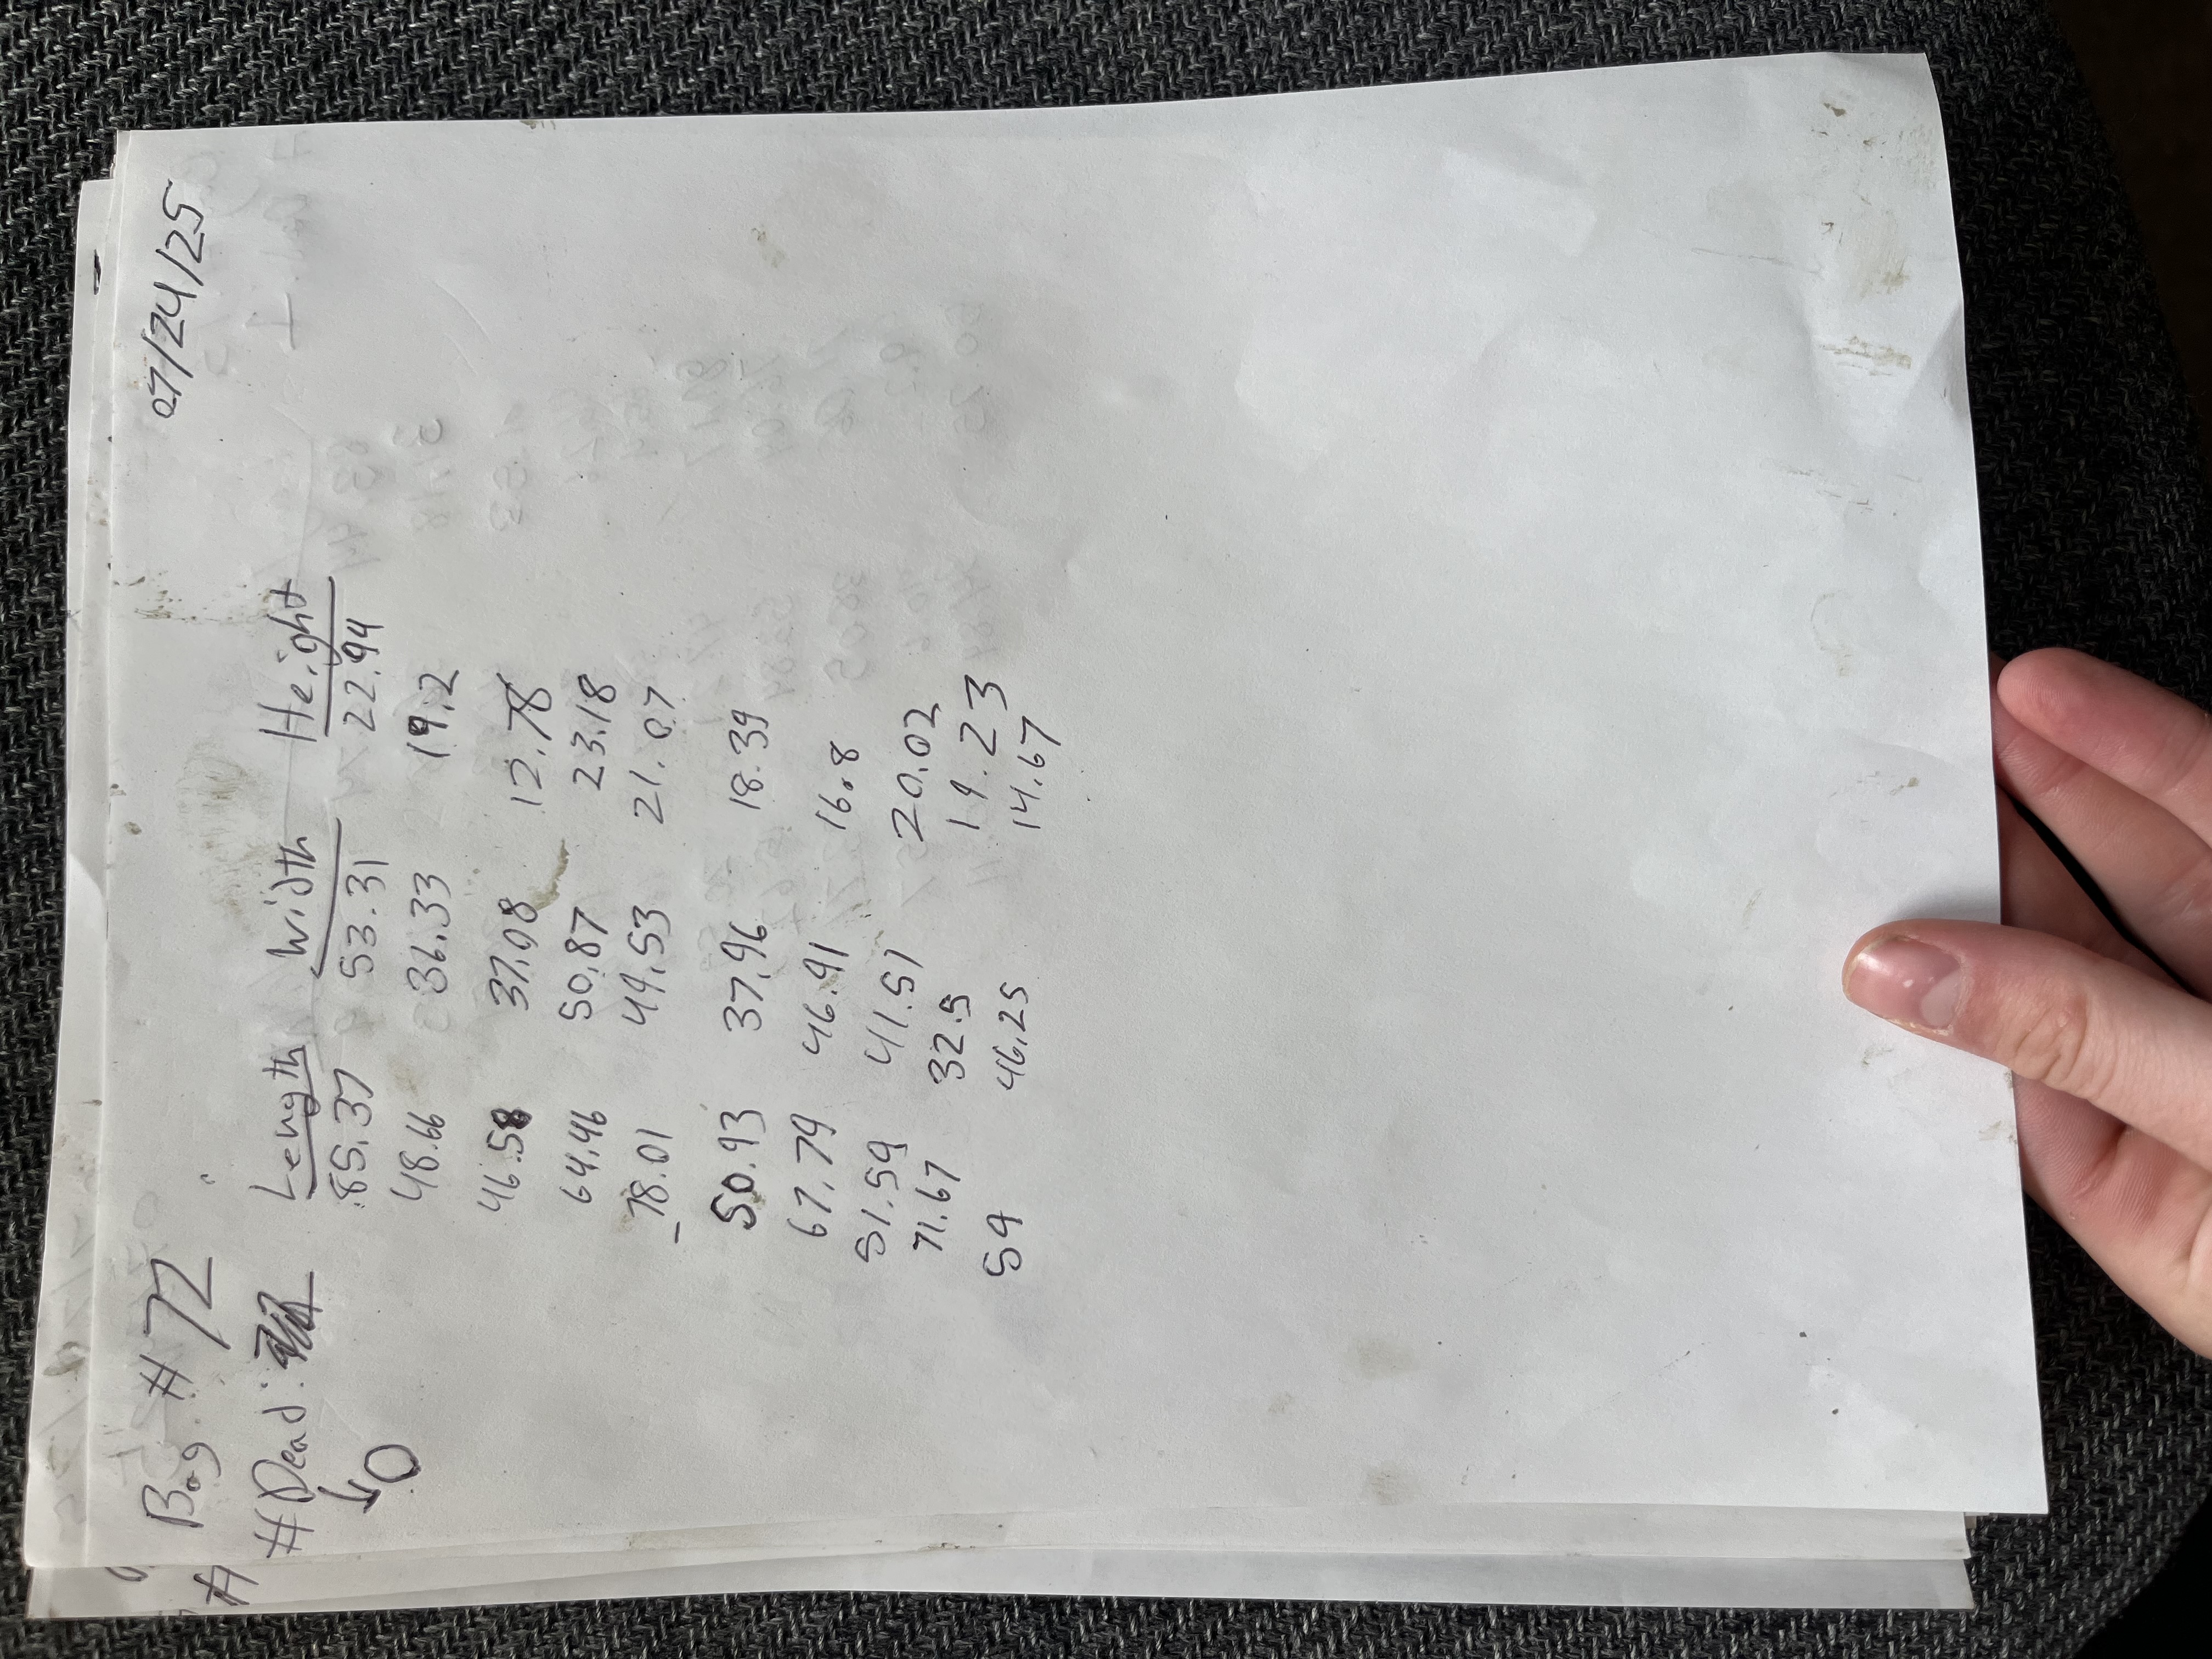 Bag #72 07/24/25
#Dead: Length Width Height
0
85.37 53.31 22.94
48.66 36.33 19.2
46.58 37.08 12.78
64.46 50.87 23.18
78.01 49.53 21.07
50.93 37.96 18.39
67.79 46.91 16.8
51.59 41.51 20.02
71.67 32.5 19.23
59 46.25 14.67